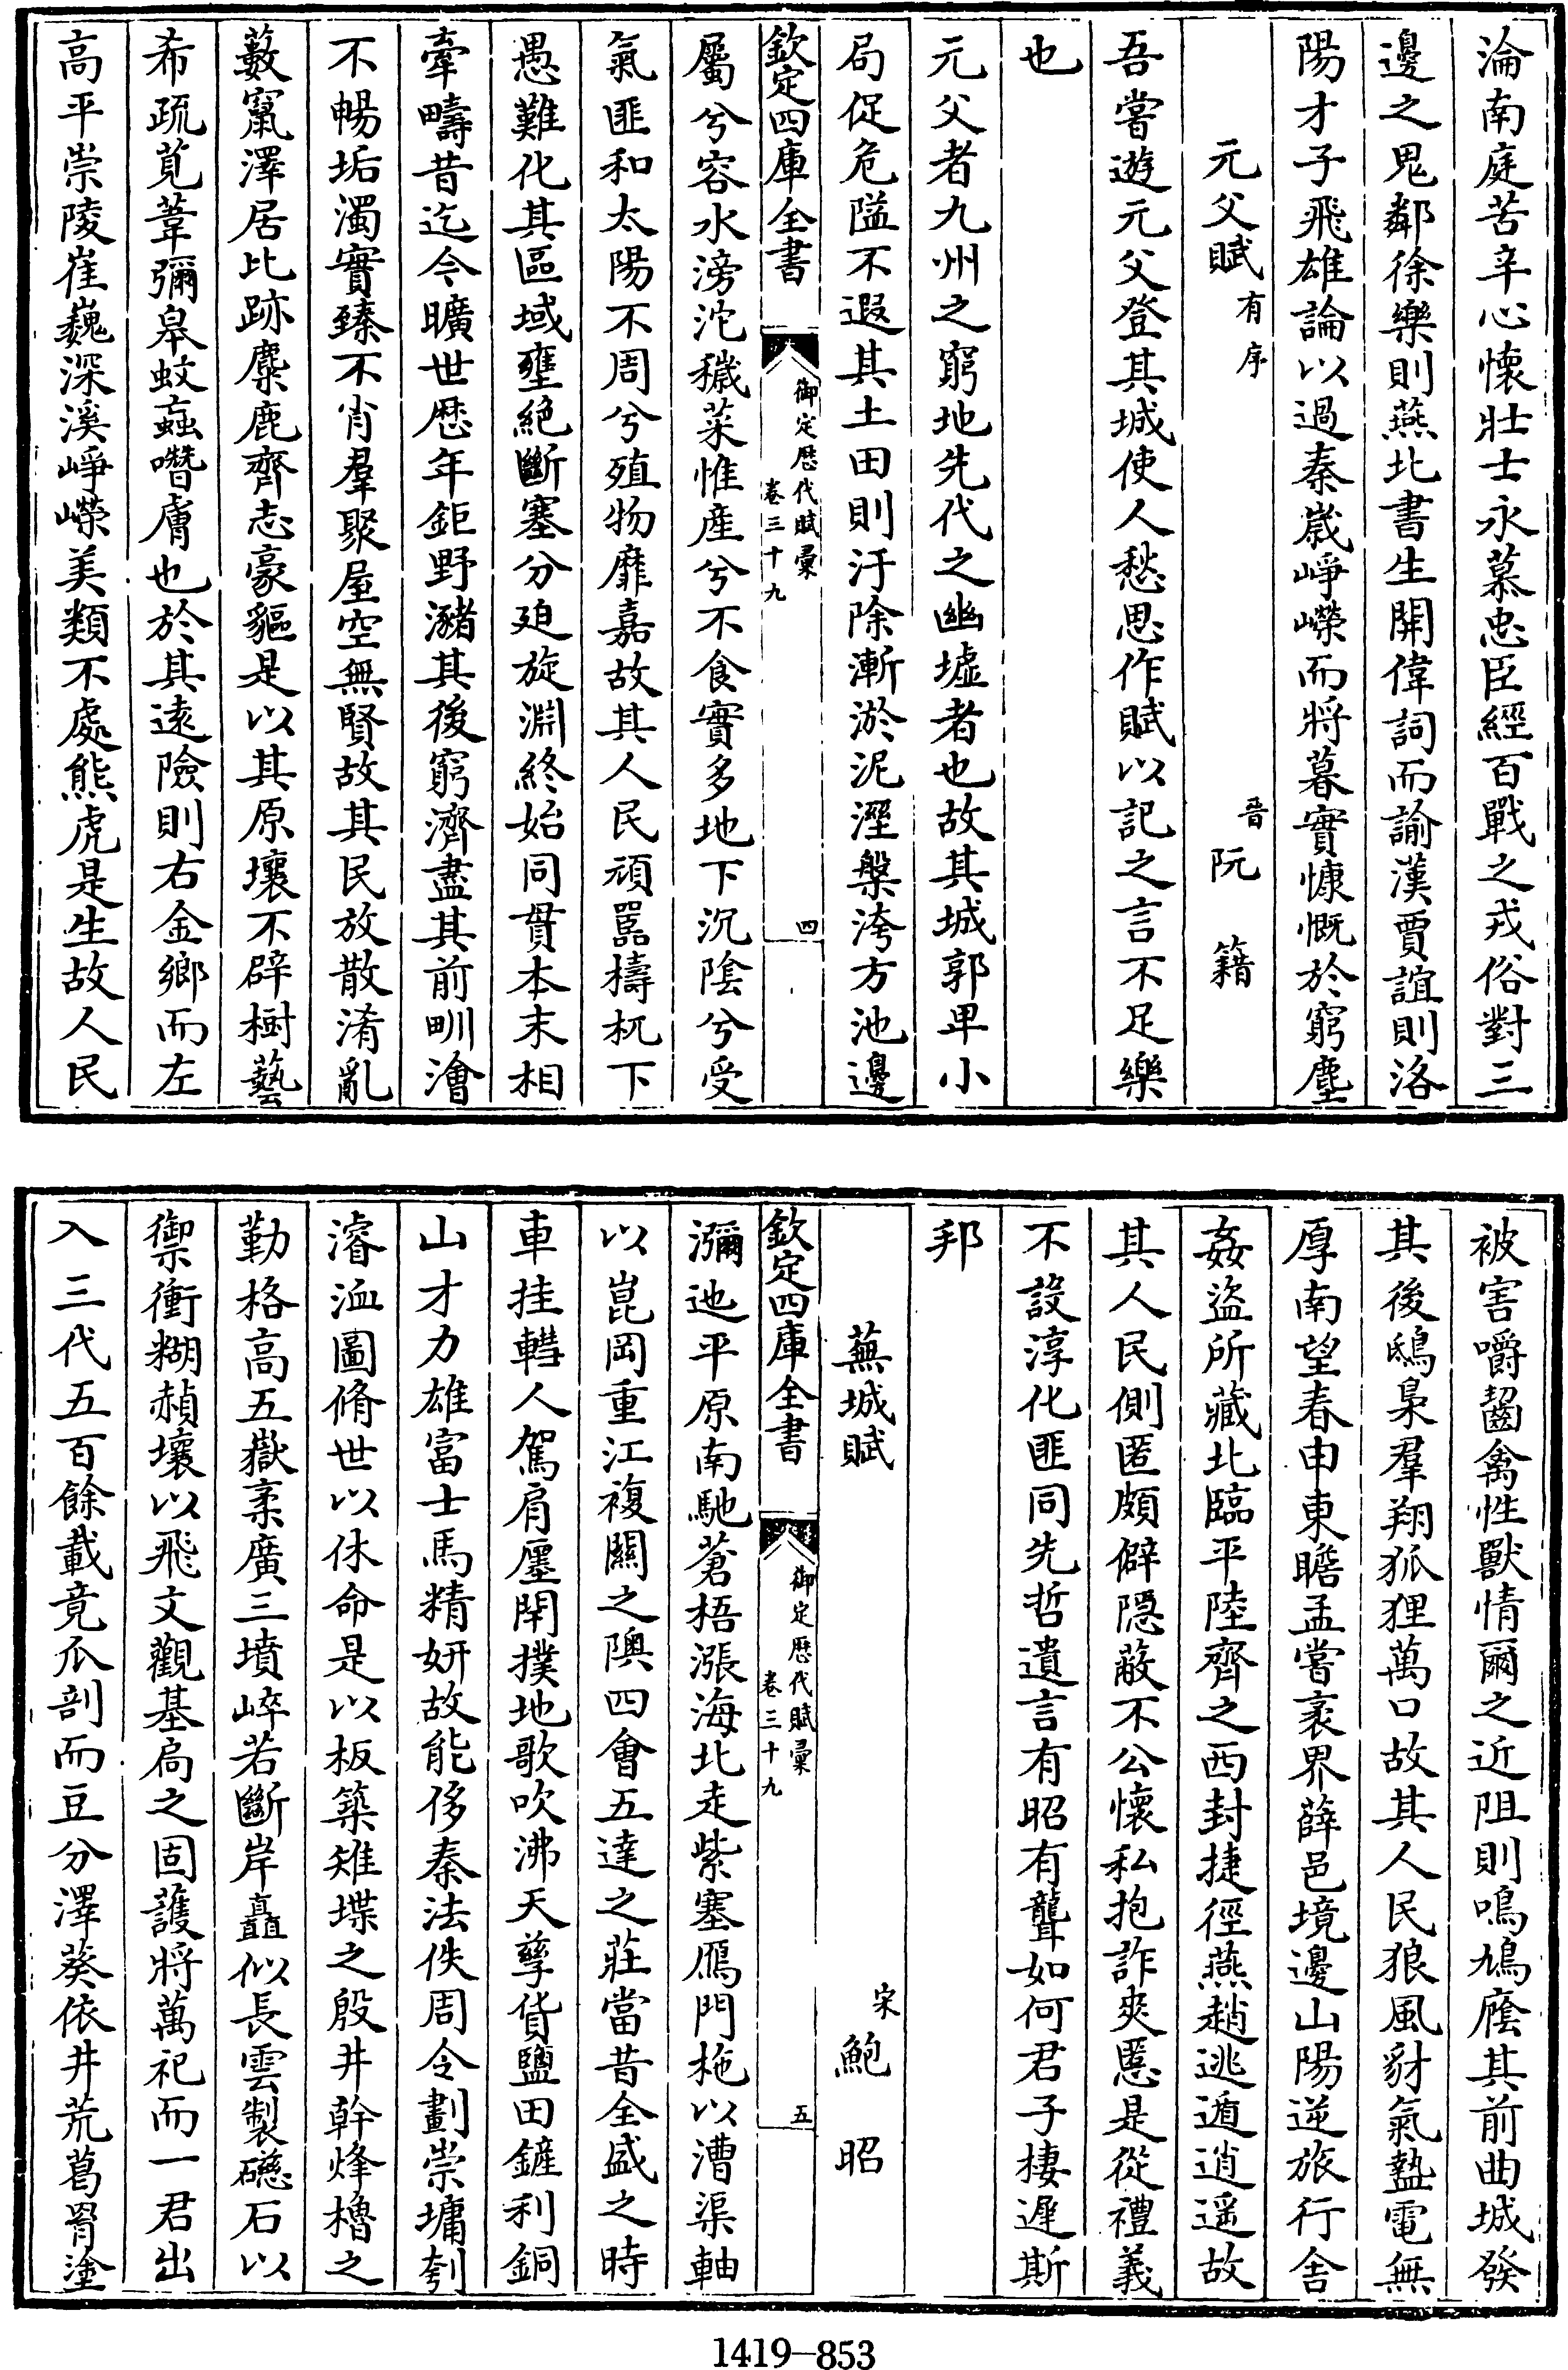 淪南庭苦辛心懷壯士永慕忠臣經百戰之戎俗對三
邊之鬼鄰徐樂則燕北書生開偉詞而諭漢賈誼則洛
陽才子飛雄論以過秦嵗崢嶸而將暮實慷慨於窮塵
元父賦有序 晉阮籍
吾嘗遊元父登其城使人愁思作賦以記之言不足樂
也
元父者九州之窮地先代之幽墟者也故其城郭卑小
局促危隘不遐其土田則汙除漸淤泥溼槃洿方池邊
欽定四庫全書 御定歴代賦彙 卷三十九 四
屬兮容水滂沱穢菜惟産兮不食實多地下沉陰兮受
氣匪和太陽不周兮殖物靡嘉故其人民頑嚚檮杌下
愚難化其區域壅絶斷塞分廹旋淵終始同貫本末相
牽疇昔迄今曠世歴年鉅野瀦其後窮濟盡其前甽澮
不暢垢濁實臻不肖羣聚屋空無賢故其民放散淆亂
藪竄澤居比跡麋鹿齊志豪貙是以其原壤不辟樹藝
希疏莧葦彌臯蚊䖟噆膚也於其逺險則右金鄉而左
高平崇陵崔巍深溪崢嶸美類不處熊虎是生故人民
被害嚼齧禽性獸情爾之近阻則鳴鳩䕃其前曲城發
其後鴟梟羣翔狐狸萬口故其人民狼風豺氣蟄電無
厚南望春申東瞻孟嘗裹界薛邑境邊山陽逆旅行舎
姦盜所藏北臨平陸齊之西封捷徑燕趙逃遁逍遥故
其人民側匿頗僻隱蔽不公懷私抱詐爽慝是從禮義
不設淳化匪同先哲遺言有昭有聾如何君子棲遲斯
邦
蕪城賦 宋鮑昭
欽定四庫全書 御定歴代賦彙 卷三十九 五
瀰迆平原南馳蒼梧漲海北走紫塞鴈門柂以漕渠軸
以崑岡重江複關之隩四會五達之莊當昔全盛之時
車挂轊人駕肩廛閈撲地歌吹沸天孳貨鹽田鏟利銅
山才力雄富士馬精妍故能侈秦法佚周令劃崇墉刳
濬洫圖脩世以休命是以板築雉堞之殷井幹烽櫓之
勤格高五嶽袤廣三墳崪若斷岸矗似長雲製磁石以
禦衝糊赬壤以飛文觀基扃之固護將萬祀而一君出
入三代五百餘載竟瓜剖而豆分澤葵依井荒葛罥塗
1419-853